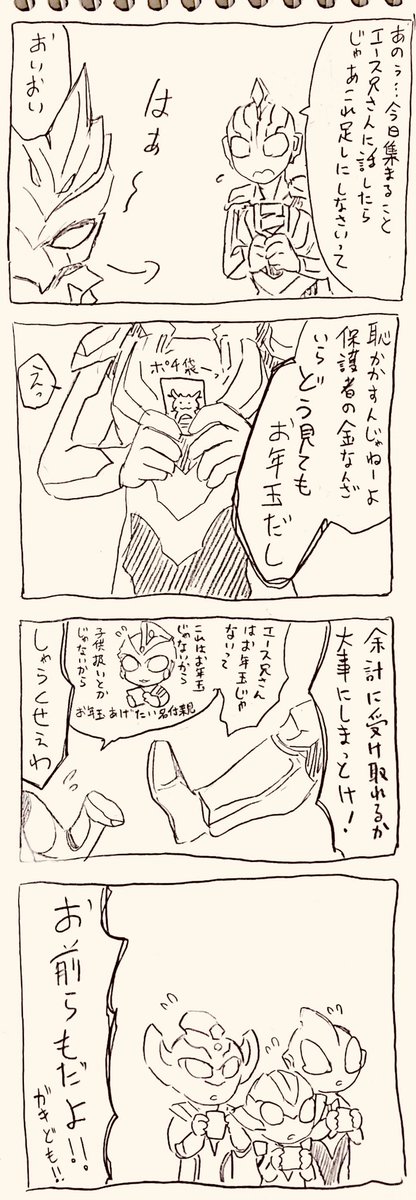 あのぅ…今日集まること
エース兄さんに話したら
じゃあこれ足しにしなさいって
はぁ〜
おいおい
恥かかすんじゃねーよ
保護者の金なんざ
いらどう見ても
お年玉だし
ポチ袋ーっ
えっ
余計に受け取れるか
大事にしまっとけ！
エース兄さん
はお年玉じゃ
ないって
これはお年玉
じゃないから
子供扱いとか
じゃないから
お年玉あげたい名付親
しゃらくせえわ
お前らもだよ!!
がきども!!